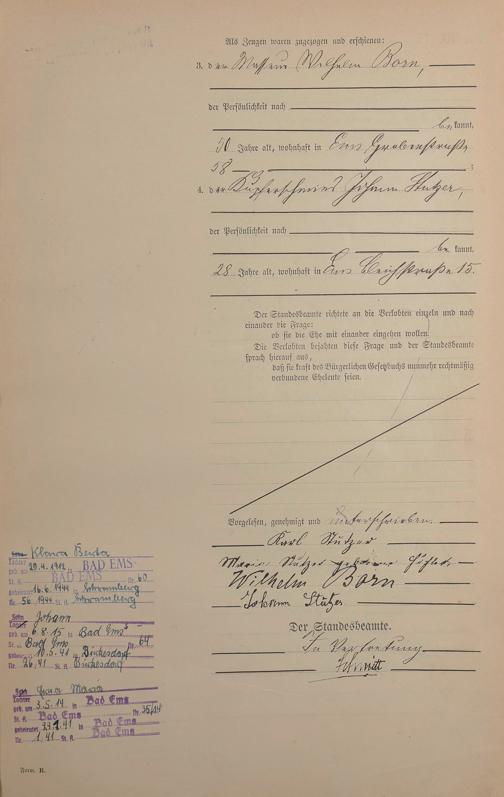 Als Zeugen waren zugezogen und erschienen:
3. der Masseur Wilhelm Born,
der Persönlichkeit nach
be kannt,
50 Jahre alt, wohnhaft in Ems Grabenstraße
58;
4. der Kupferschmied Johann Stutzer,
der Persönlichkeit nach
be kannt,
28 Jahre alt, wohnhaft in Ems Bleichstraße 15.
Der Standesbeamte richtete an die Verlobten einzeln und nach
einander die Frage:
ob sie die Ehe mit einander eingehen wollen.
Die Verlobten bejahten diese Frage und der Standesbeamte
sprach hierauf aus,
daß sie kraft des Bürgerlichen Gesetzbuchs nunmehr rechtmäßig
verbundene Eheleute seien.
Vorgelesen, genehmigt und unterschrieben.
Karl Stutzer
Maria Stutzer geborene
Wilhelm Born
Johann Stutzer
Der Standesbeamte.
In Vertretung
Schmitt
Klara Berta
Tochter
geb. am 20.4.1912 in BAD EMS
St. A. BAD EMS Nr. 60
geheiratet 16.6.1944 in Schramberg
Nr. 56 1944 St. A. Schramberg
Sohn Johann
Tochter
geb. am 6.8.15 in Bad Ems
St. A. Bad Ems Nr. 64
geheiratet 10.5.41 in
Nr. 26/41 St. A.
Sohn Maria
Tochter
geb. am 3.5.14 in Bad Ems
St. A. Bad Ems Nr. 35/14
geheiratet 41 in Bad Ems
Nr. 1/41 St. A. Bad Ems
Form. B.